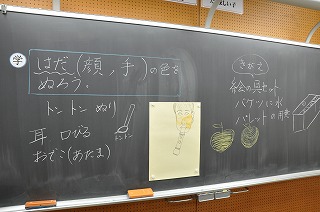 学
はだ(顔,手)の色を
ぬろう。
トントン ぬり
耳 口びる
おでこ(あたま)
トントン
きがえ
絵の具セット
バケツに水
パレットの用意